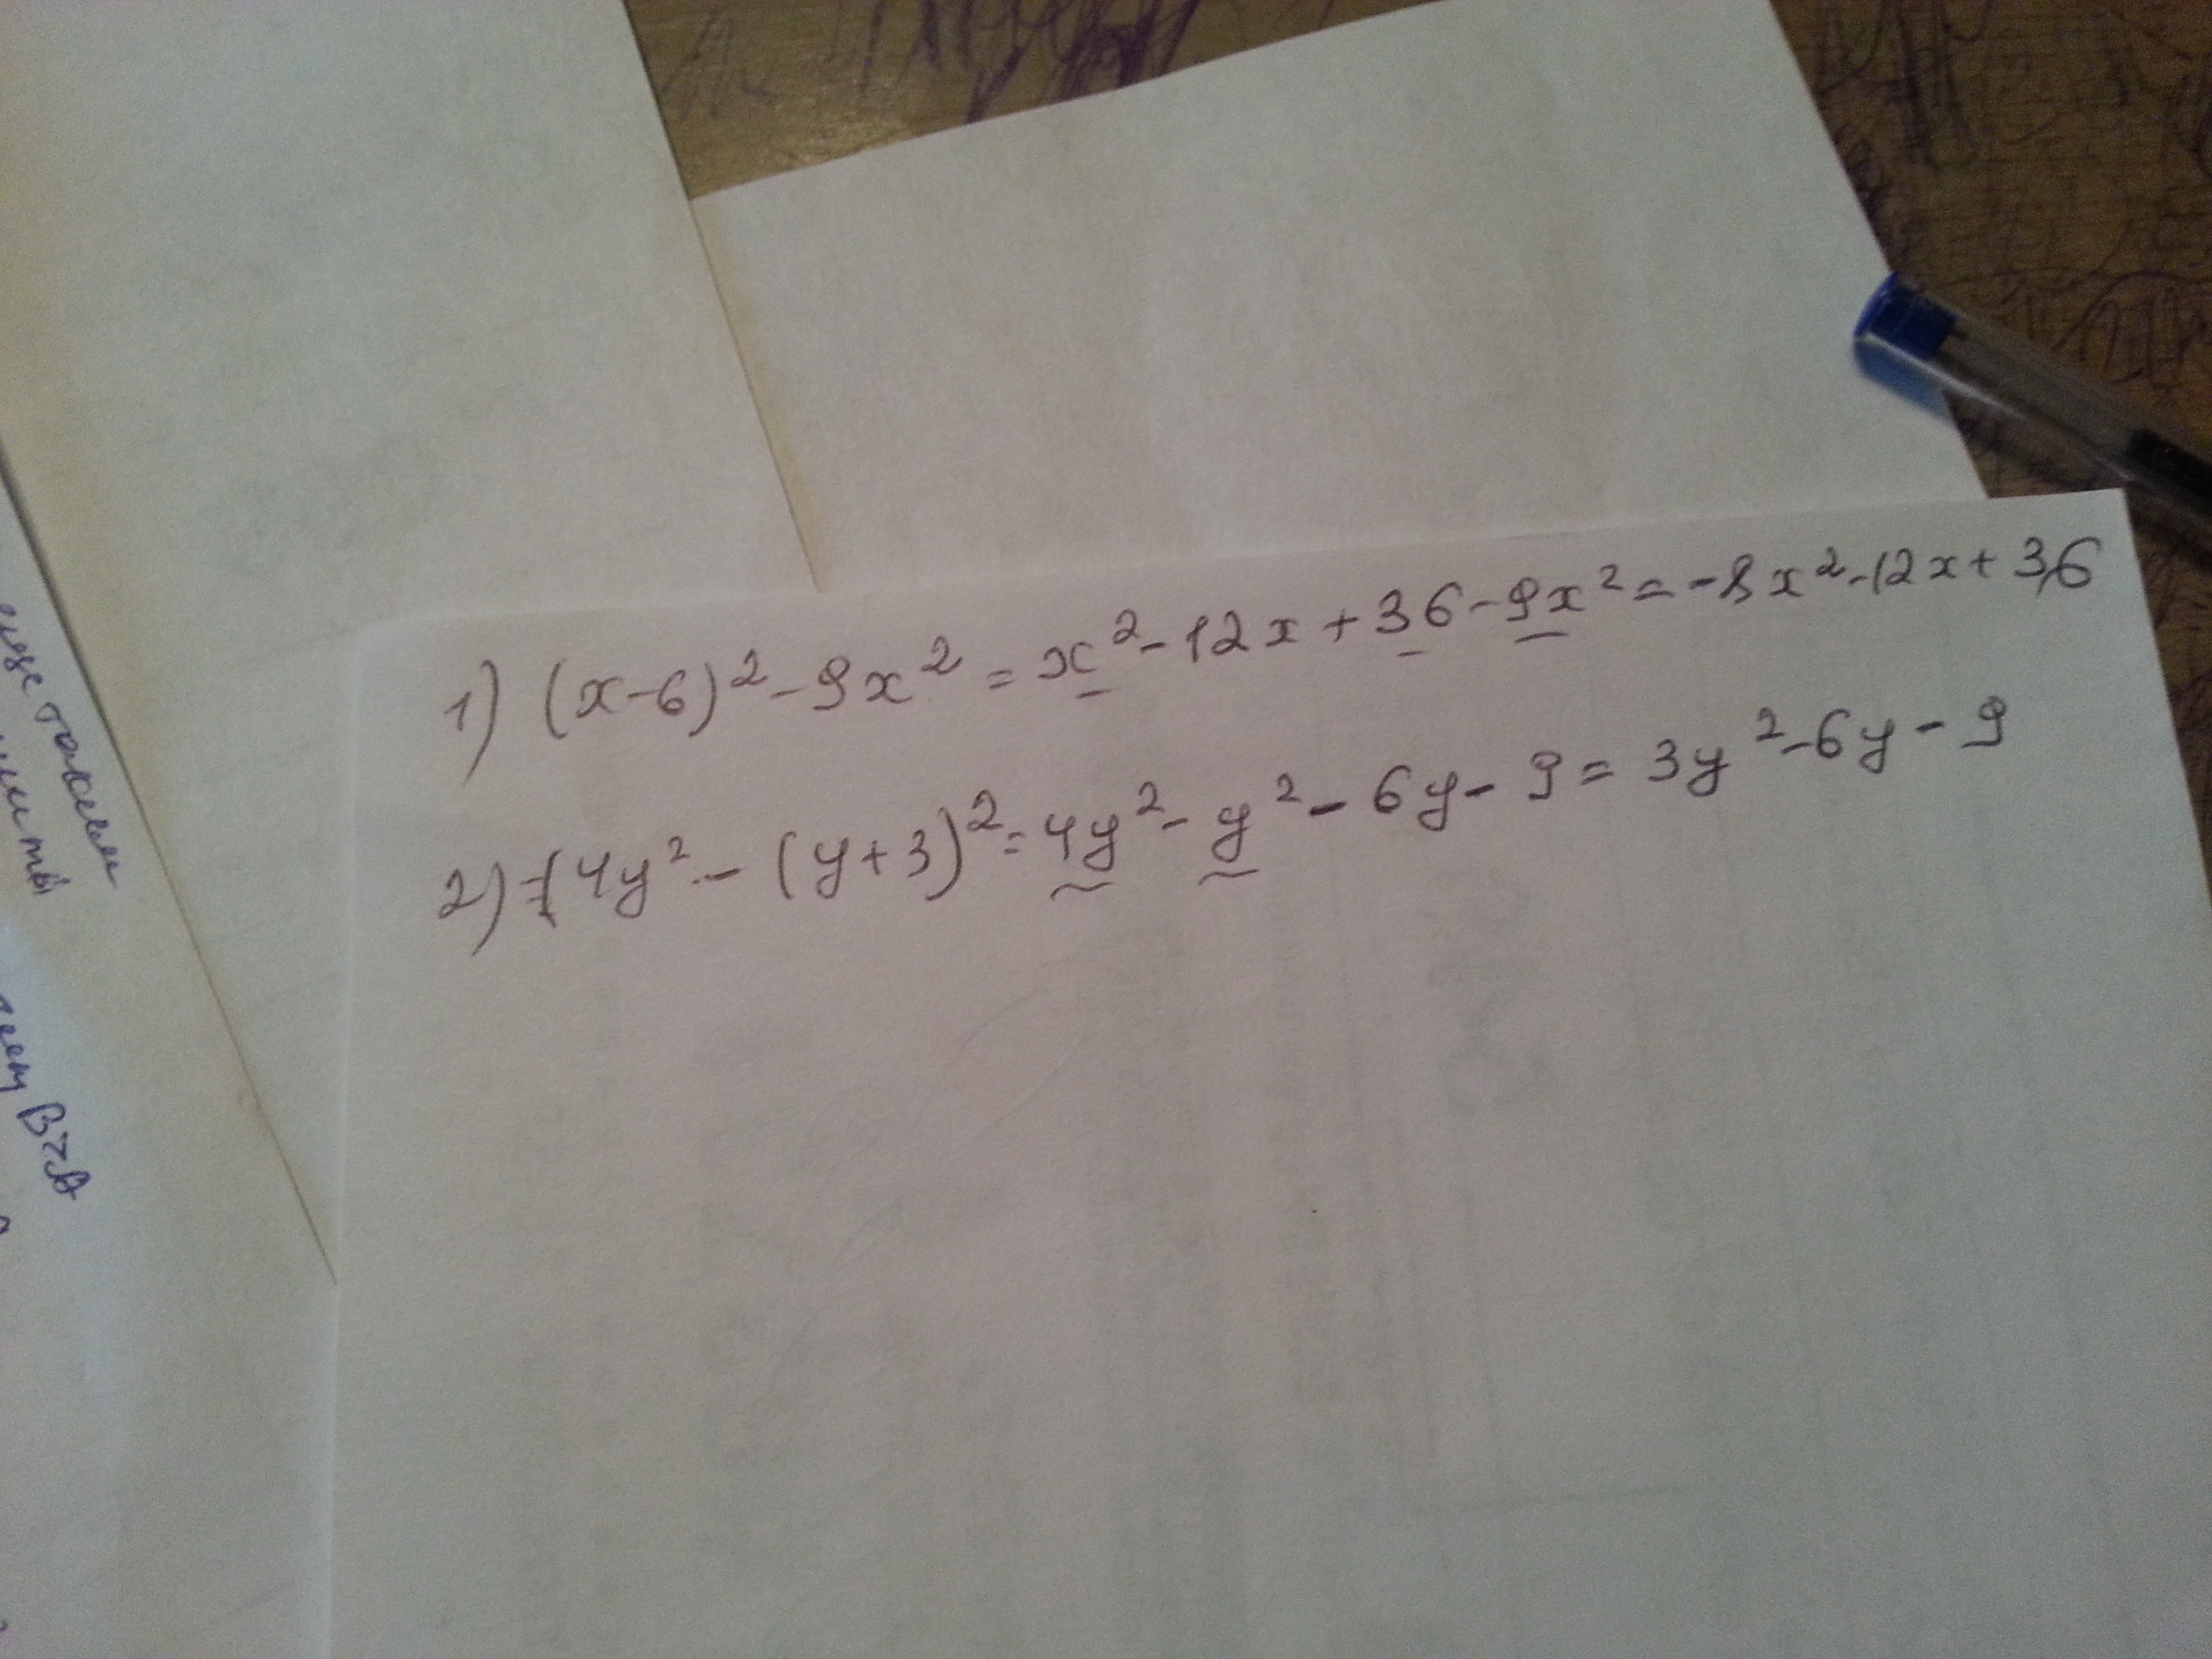 1) (x-6)² - 9x² = x² - 12x + 36 - 9x² = -8x² - 12x + 36
2) 4y² - (y+3)² = 4y² - y² - 6y - 9 = 3y² - 6y - 9
еще